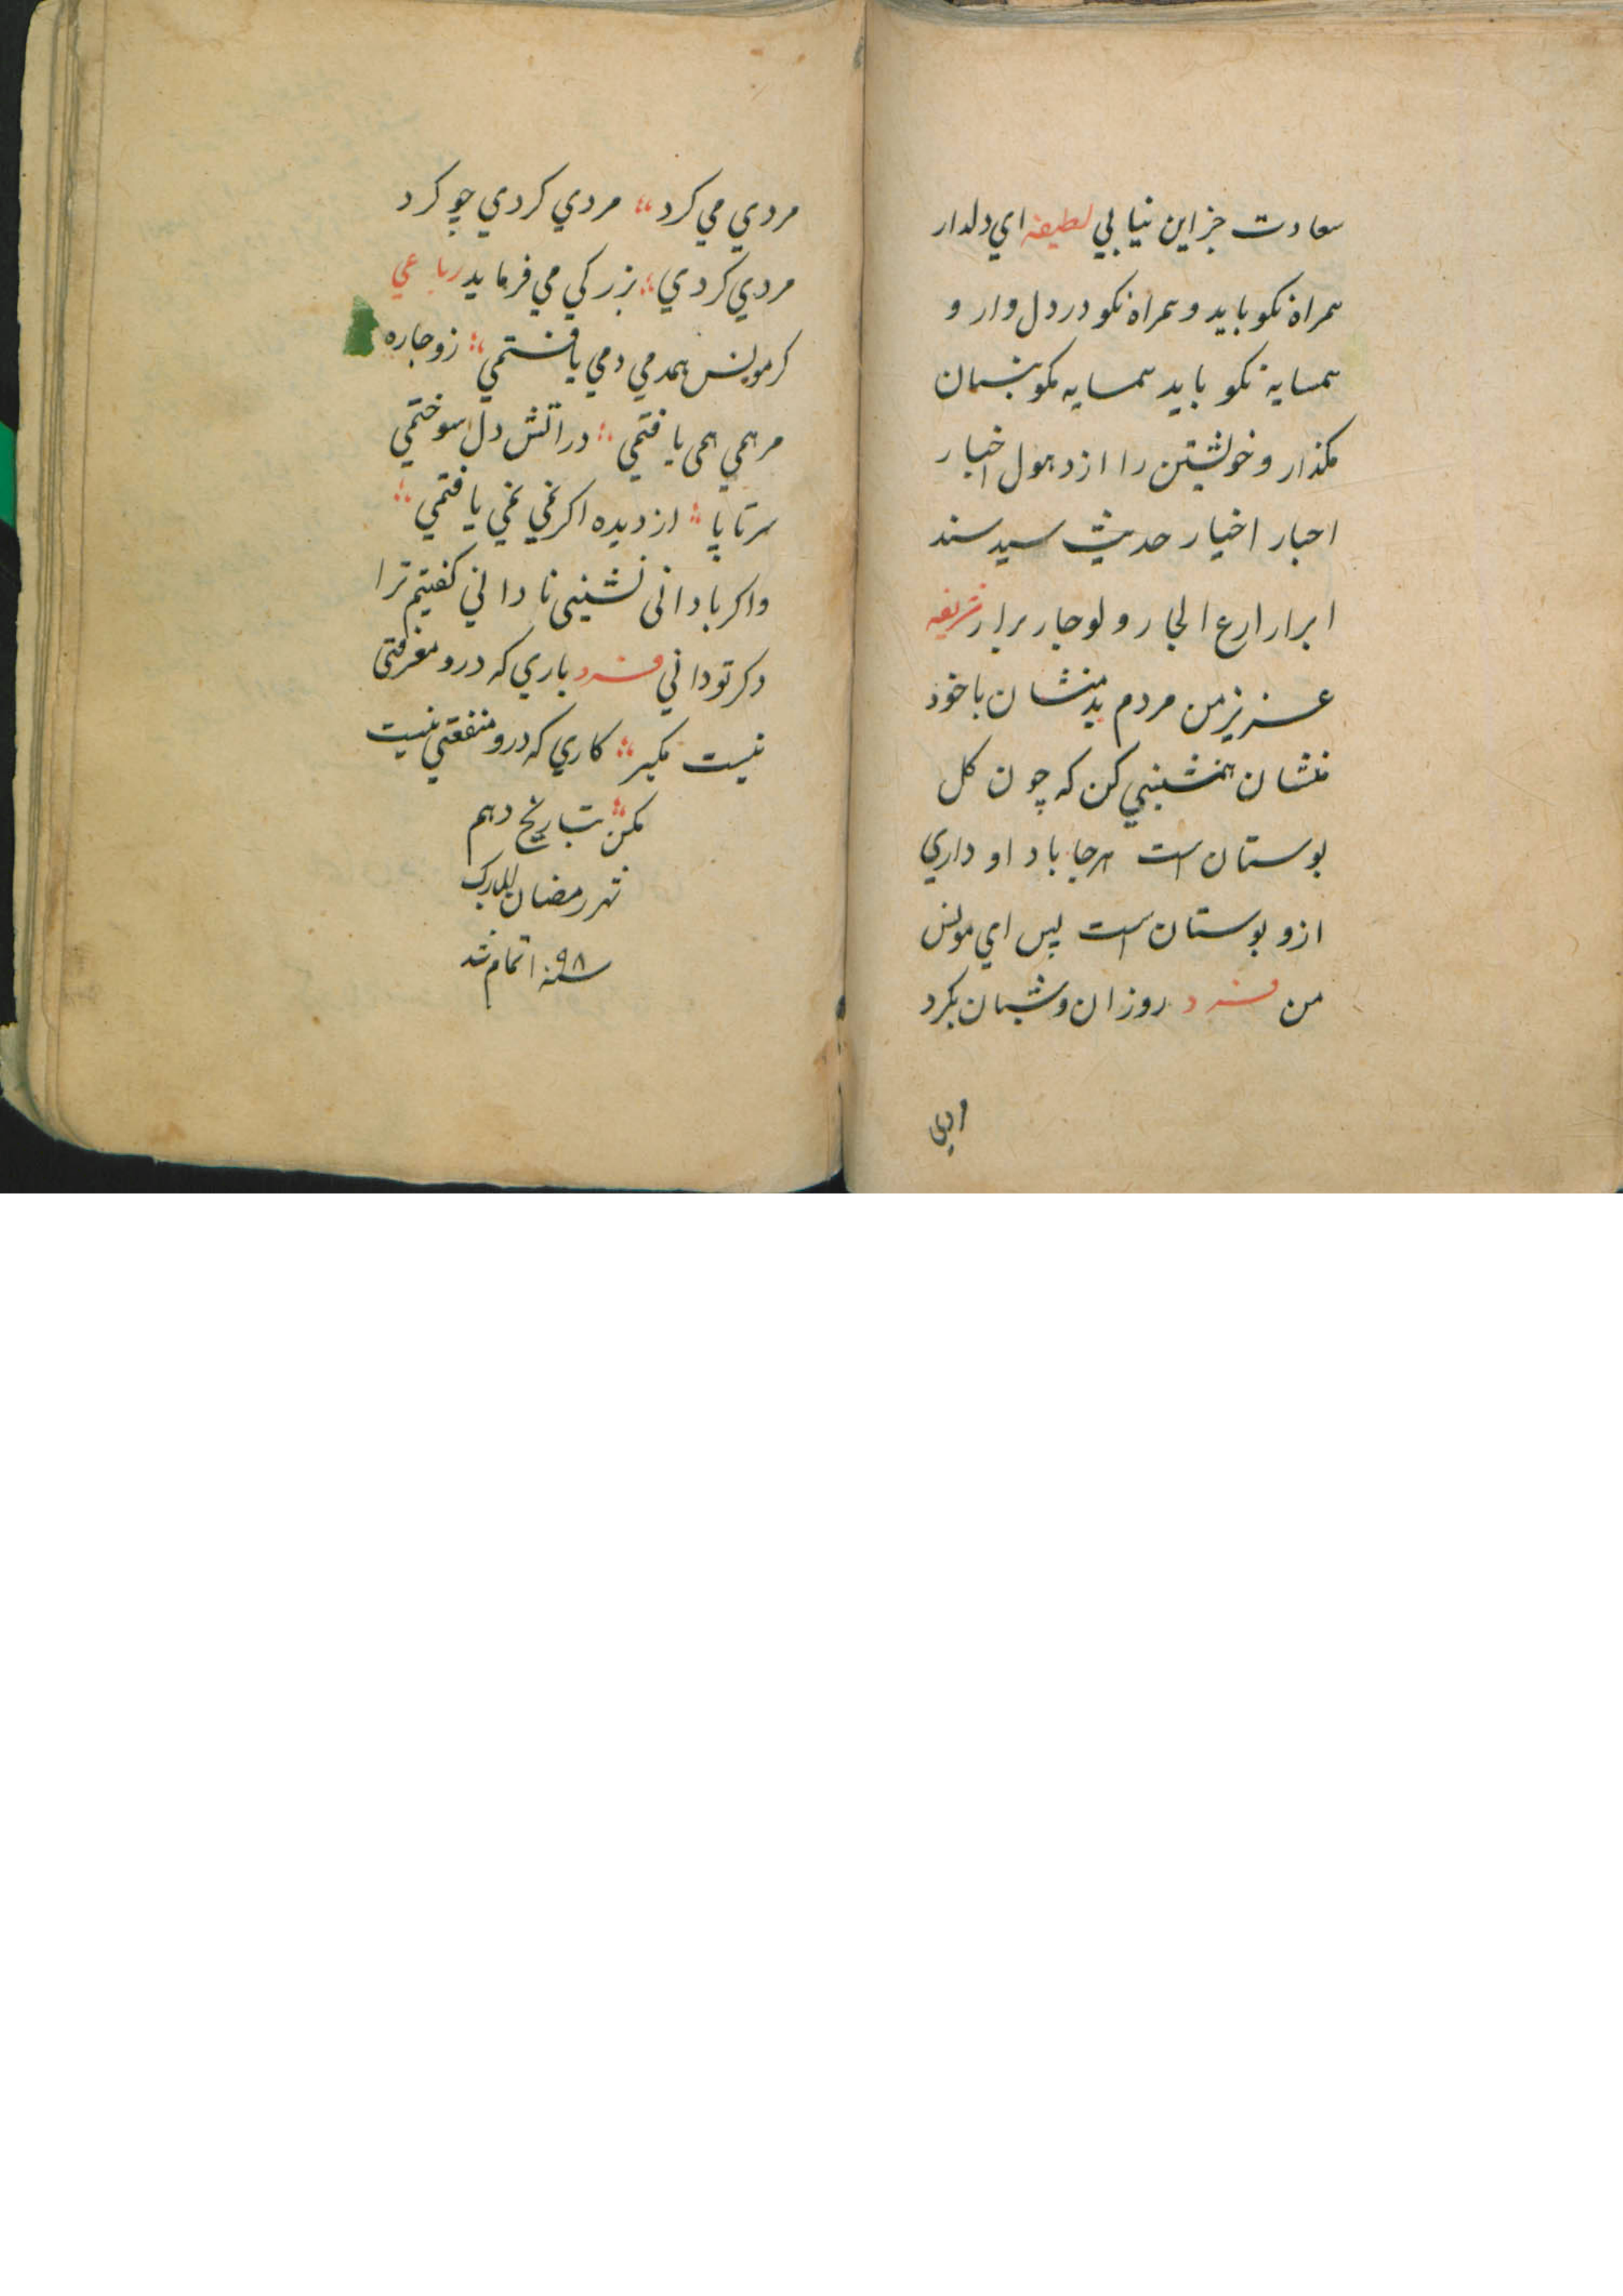 سعادت جز اين نيابي لطيفه اي دلدار
همراه نكو بايد و همراه نكو در دل دار و
همسايه نكو بايد همسايه نكو بنشان
مكذار و خويشتن را از دهول اخبار
احبار اخيار حديث سيد سند
ابرار ارع الجار و لو جار برار شريفه
عزيز من مردم بد منشان با خود
منشان همنشيني كن كه چون كل
بوستان است هر جا باد او داري
ازو بوستان است پس اي مونس
من فرد روزان و شبان بكرد
مردي مي كرد مردي كردي چو كرد
مردي كردي بزركي مي فرمايد رباعي
كر مونس همدمي دمي يافتمي زو چاره
مرهمي همي يافتمي در اتش دل سوختمي
سر تا پا از ديده اكر نمي نمي يافتمي
واكر با دانى نشينى نادانى كفتيم ترا
دكر تو داني فرد ياري كه درو معرفتى
نيست مكير كاري كه درو منفعتي نيست
مكن بتاريخ دهم
شهر رمضان المبارك
سنه ٩٨ اتمام شد